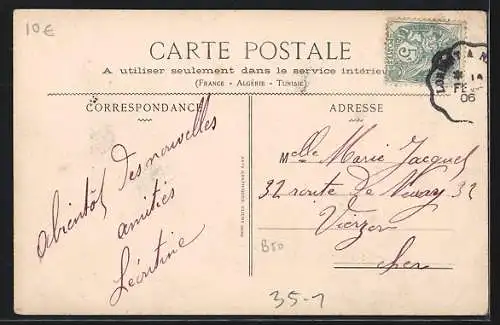 10€
CARTE POSTALE
A utiliser seulement dans le service intérieur
(FRANCE - ALGÉRIE - TUNISIE)
CORRESPONDANCE
ADRESSE
A bientôt des nouvelles
amitiés
Léontine
Melle Marie Jacquet
32 route de 32
Vierzon
Cher
B50
35-1
5
FE
06